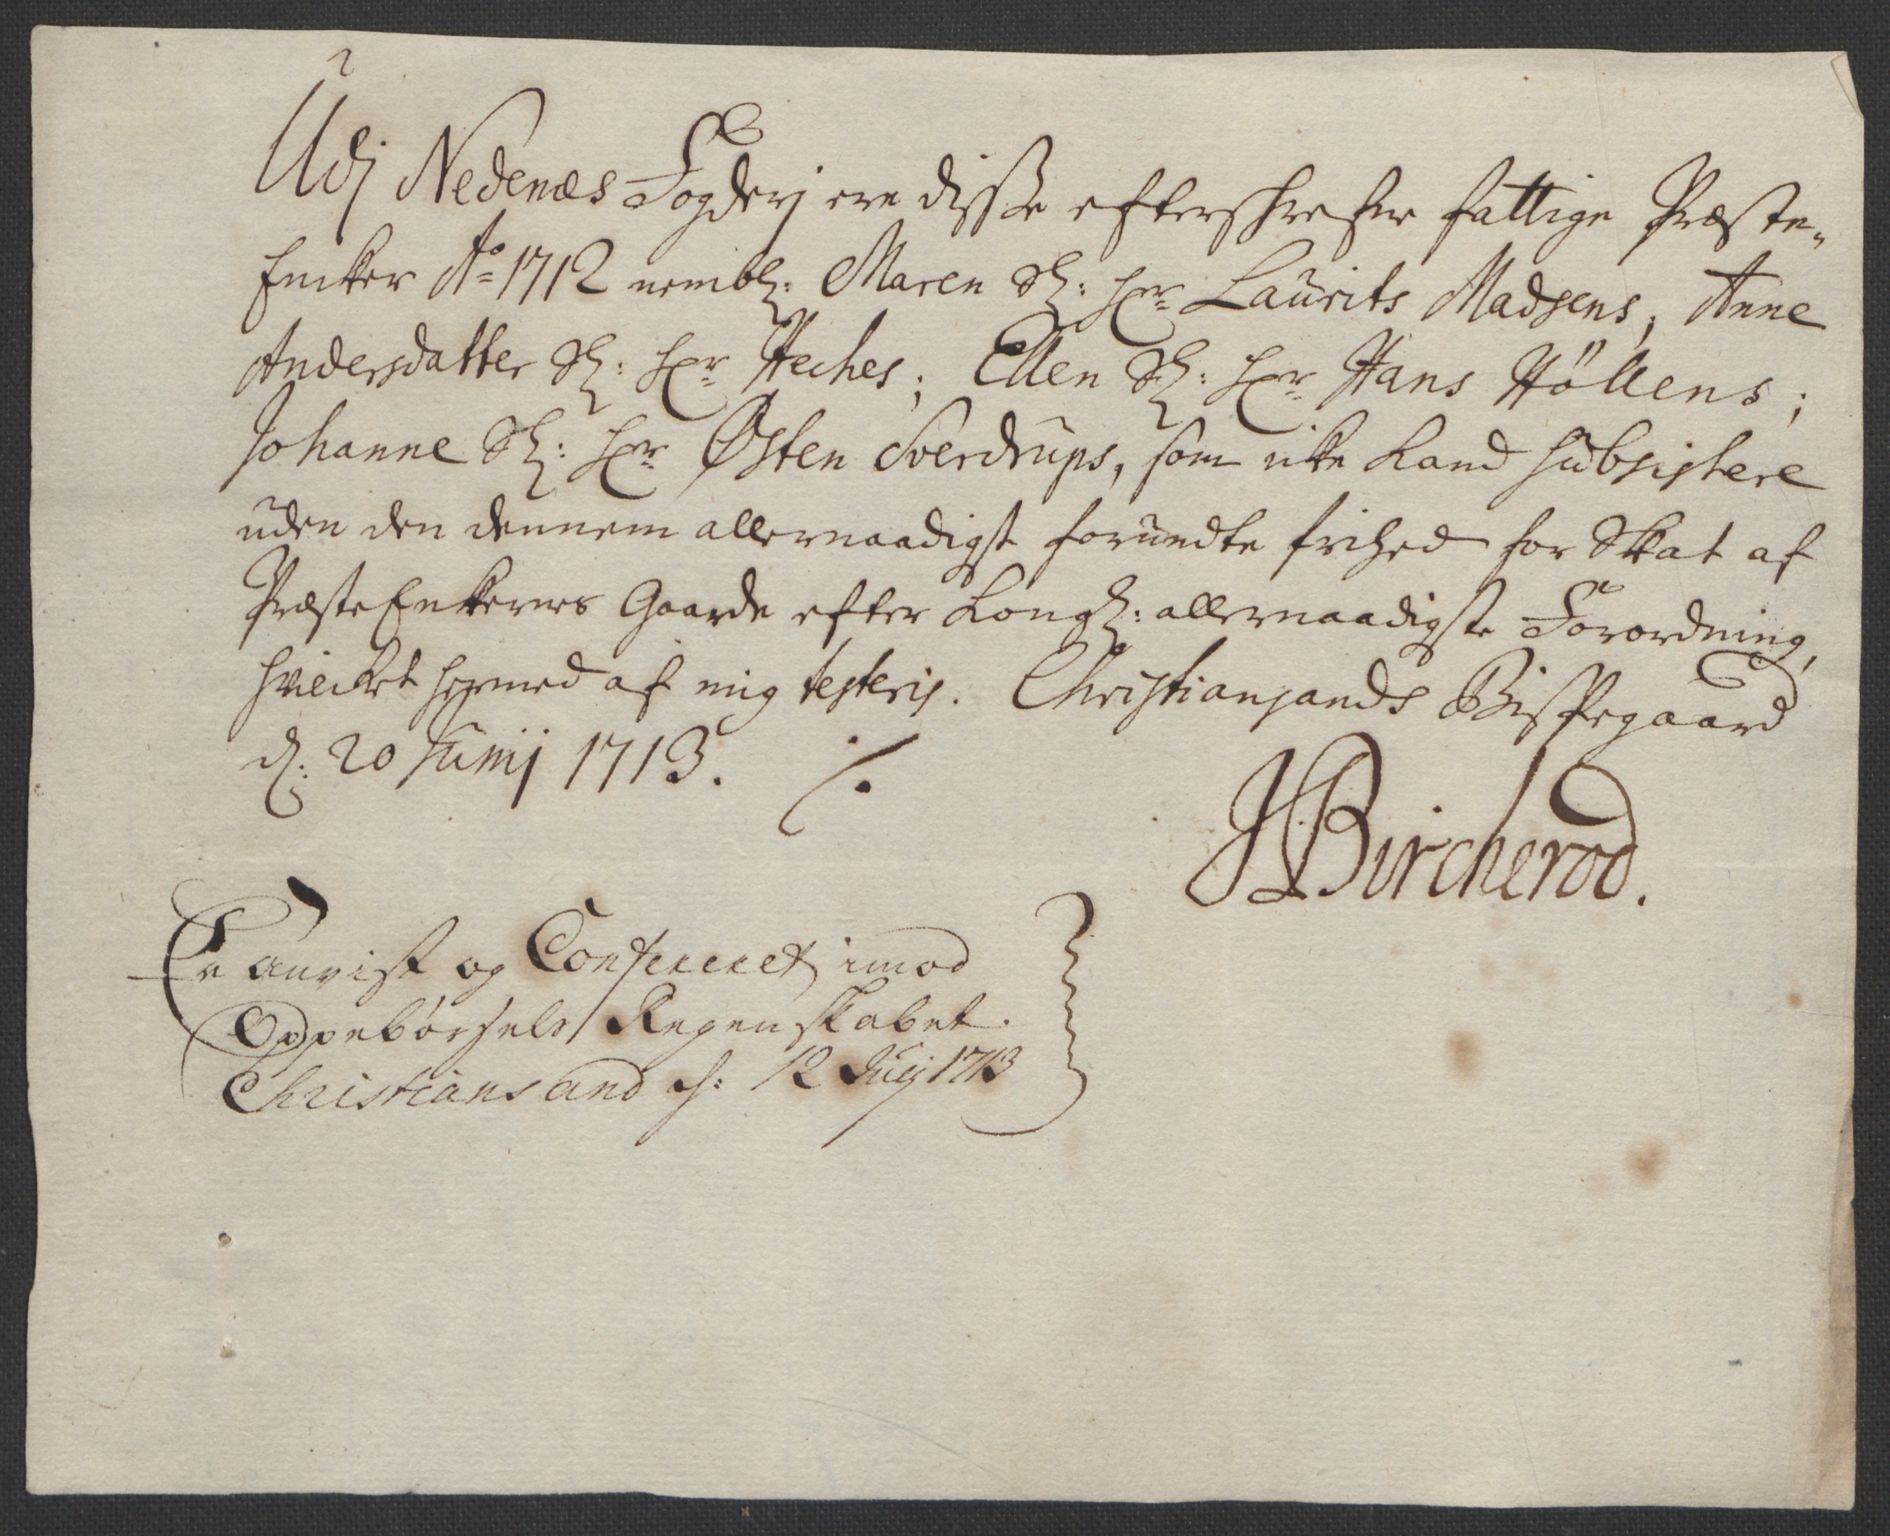 Udj Nedenæs Fogderj ere disse efterschrefne fattige Præste-
Encker Ao 1712 nembl: Maren Sl: Hr Laurits Madsens, Anne
Andersdatter Sl: Hr Heches; Ellen Sl: Hr Hans Höllens;
Johanne Sl: Hr Østen Sverdrups, som icke kand subsistere
uden den dennem allernaadigst forundte frihed for Skat af
PræsteEnckernes Gaarde efter Kongl: allernaadigste Forordning,
hvilcket hermed af mig testeris. Christiansands Bispegaard
d: 20 Junij 1713. ./.
JBircherod.
Er anvist og Confereret imod
Oppebørsels Regenskabet.
Christiansand d: 12 Julij 1713